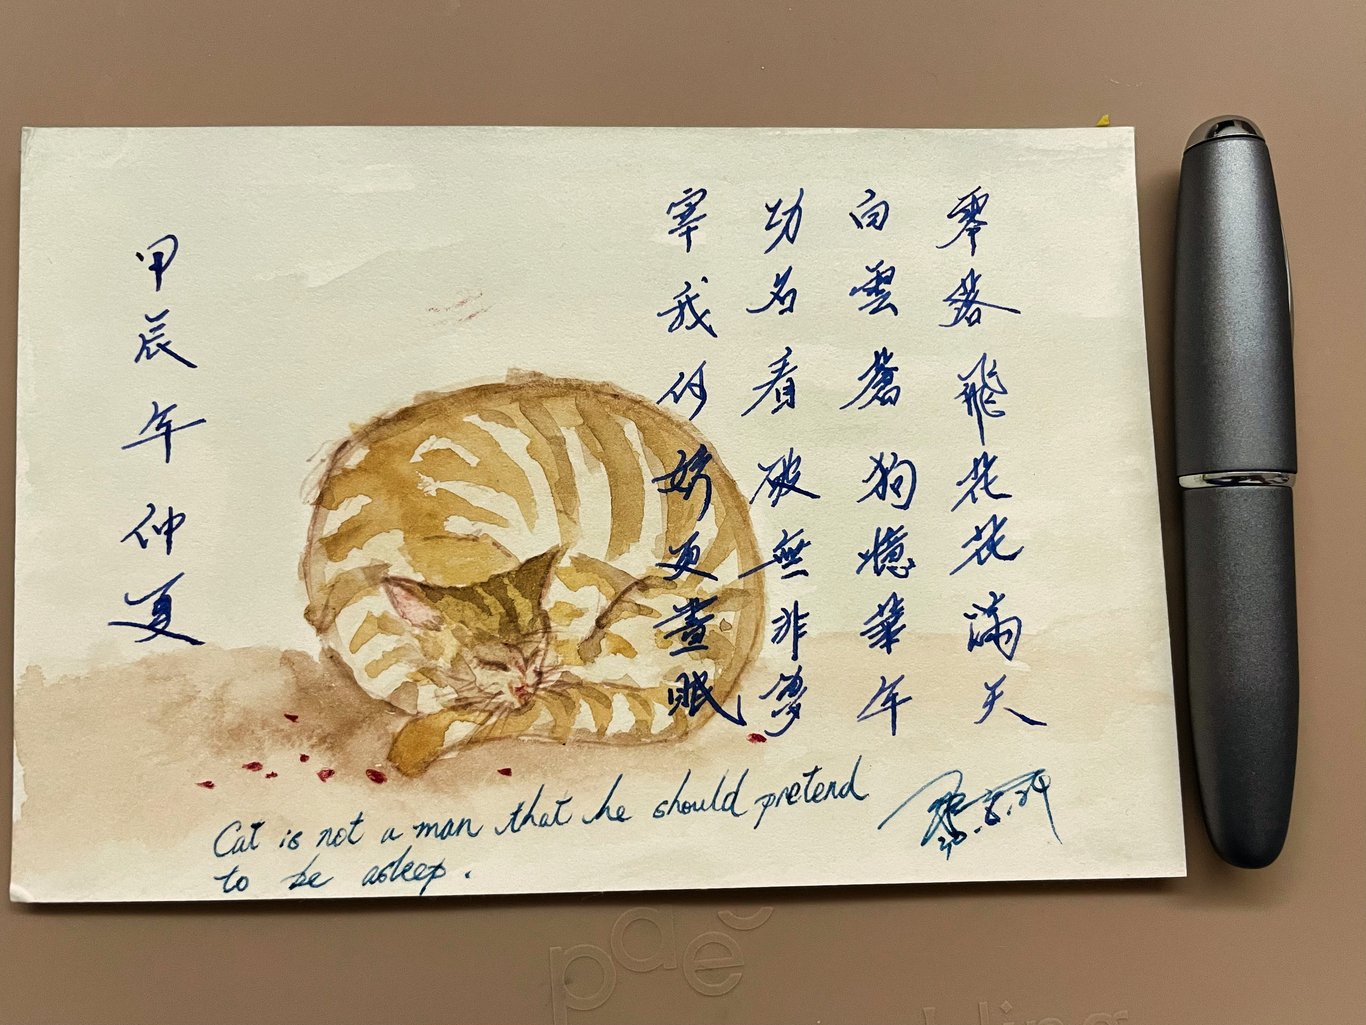 零落飛花花滿天
白雲蒼狗憶華年
功名看破無非夢
宰我何妨更晝眠
甲辰年仲夏
Cat is not a man that he should pretend
to be asleep.